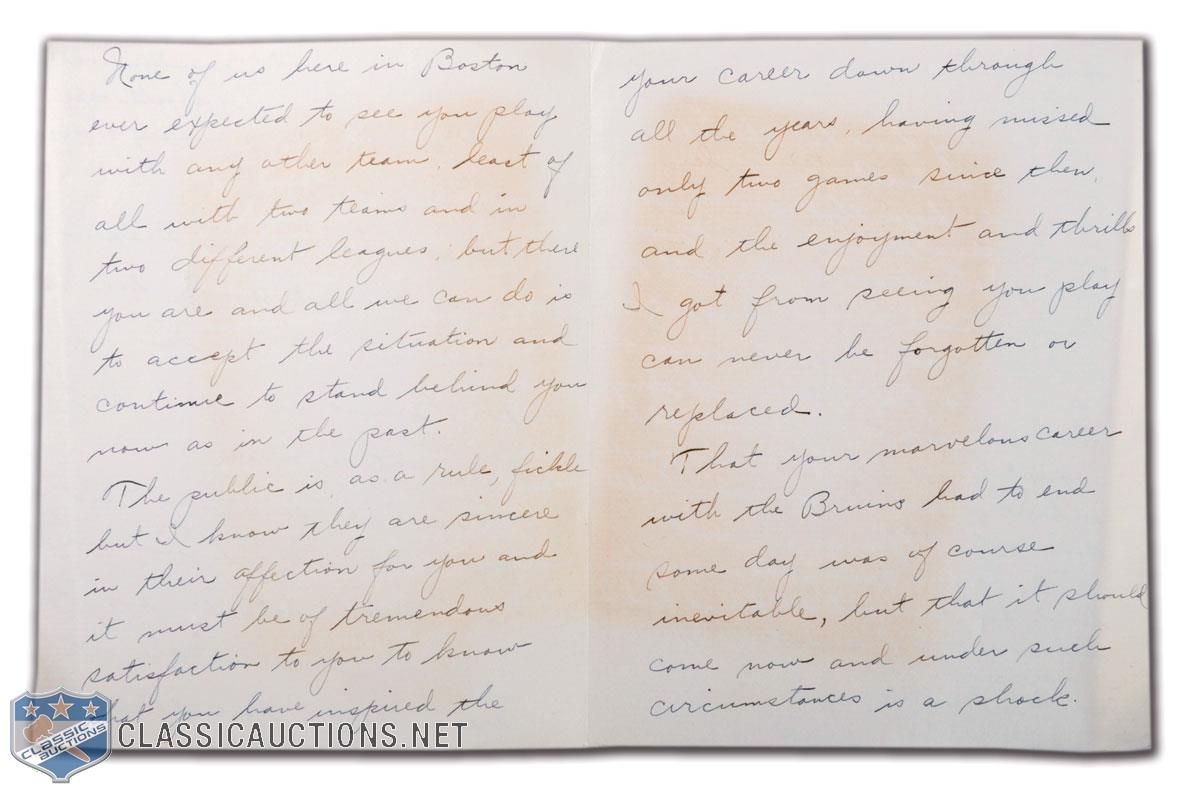 None of us here in Boston
ever expected to see you play
with any other team, least of
all with two teams and in
two different leagues, but there
you are and all we can do is
to accept the situation and
continue to stand behind you
now as in the past.
The public is, as a rule, fickle
but I know they are sincere
in their affection for you and
it must be of tremendous
satisfaction to you to know
that you have inspired the
your career down through
all the years, having missed
only two games since then,
and the enjoyment and thrills
I got from seeing you play
can never be forgotten or
replaced.
That your marvelous career
with the Bruins had to end
some day was of course
inevitable, but that it should
come now and under such
circumstances is a shock.
CLASSIC
AUCTIONS
CLASSICAUCTIONS.NET